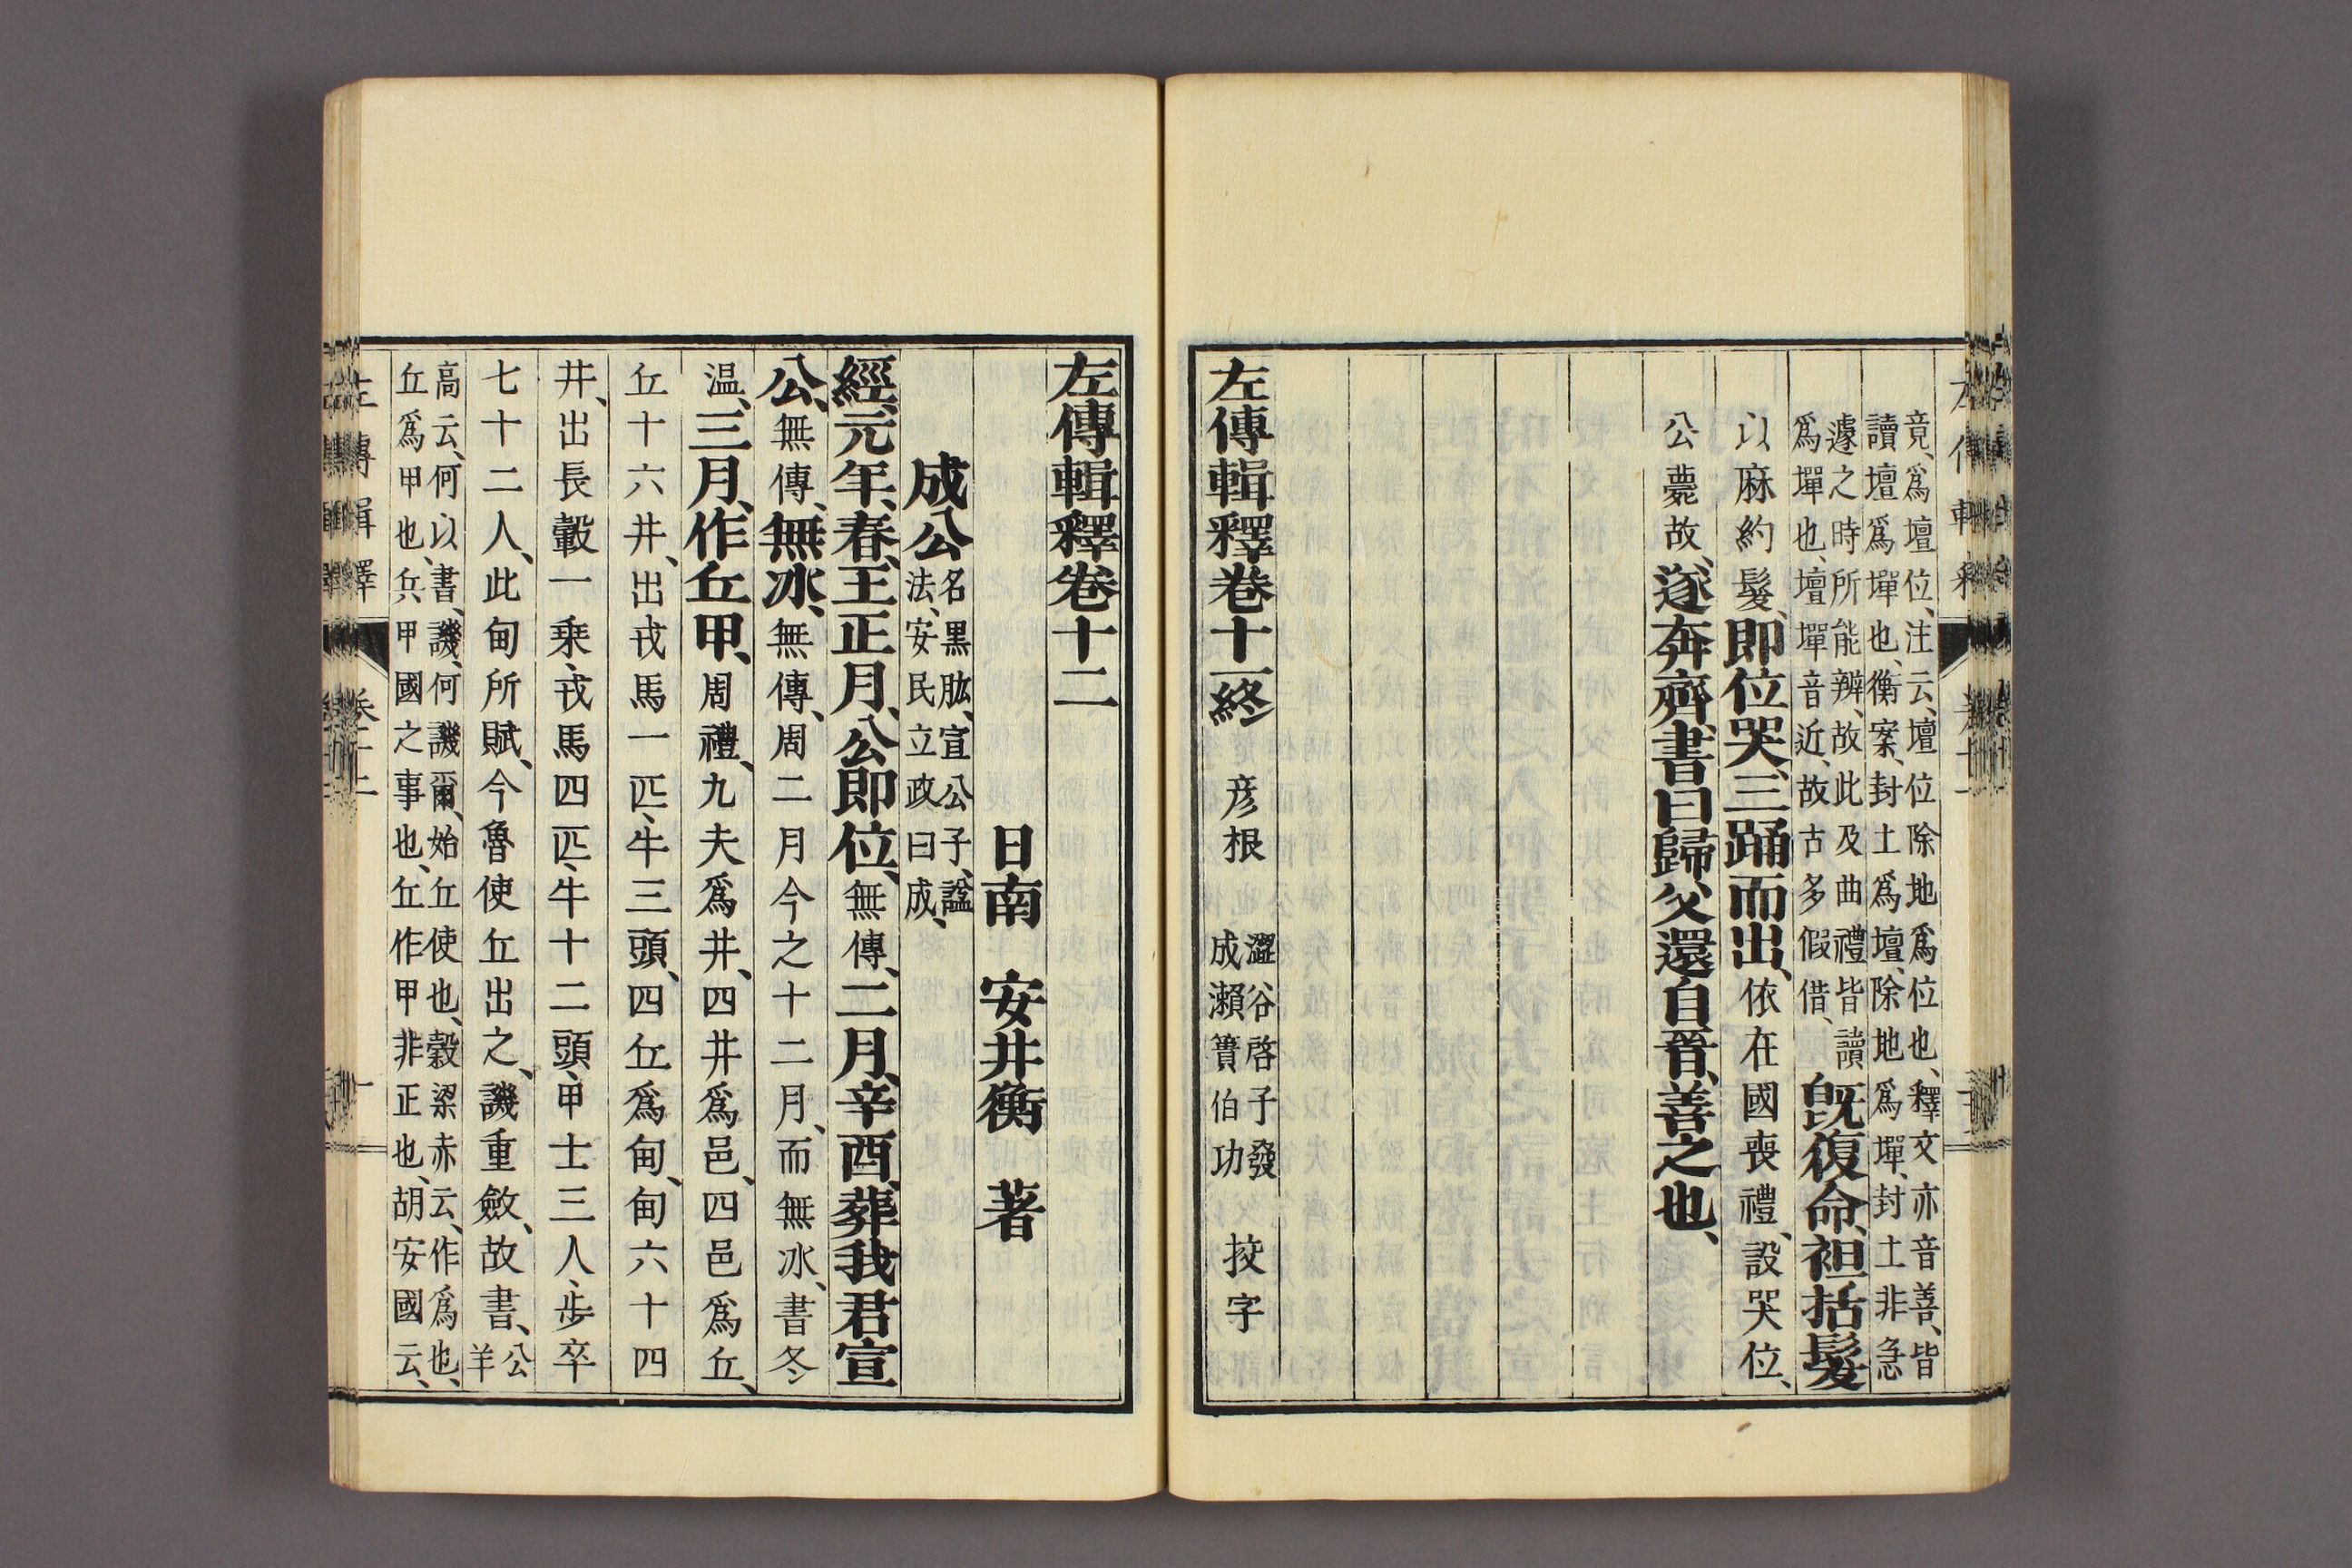 竟、爲壇位、注云、壇位除地爲位也、釋文亦音善、皆
讀壇爲墠也、衡案、封土爲壇、除地爲墠、封土非急
遽之時所能辨、故此及曲禮皆讀
爲墠也、壇墠音近、故古多假借、
既復命、袒括髮
以麻約髮、即位哭、三踊而出、依在國喪禮、設哭位、
公薨故、遂奔齊、書曰歸父還自晉、善之也、
左傳輯釋卷十一終
彦根
澀谷啓子發
成瀨簣伯功
挍字
左傳輯釋卷十二
日南 安井衡 著
成公
名黑肱、宣公子、謚
法、安民立政曰成、
經、元年、春、王正月、公即位、無傳、二月、辛酉、葬我君宣
公、無傳、無冰、無傳、周二月今之十二月、而無冰、書冬
温、三月、作丘甲、周禮、九夫爲井、四井爲邑、四邑爲丘、
丘十六井、出戎馬一匹、牛三頭、四丘爲甸、甸六十四
井、出長轂一乘、戎馬四匹、牛十二頭、甲士三人、步卒
七十二人、此甸所賦、今魯使丘出之、譏重斂、故書、
公
羊
高云、何以書、譏、何譏爾、始丘使也、穀梁赤云、作爲也、
丘爲甲也、兵甲國之事也、丘作甲非正也、胡安國云、
左傳輯釋
卷十二
一